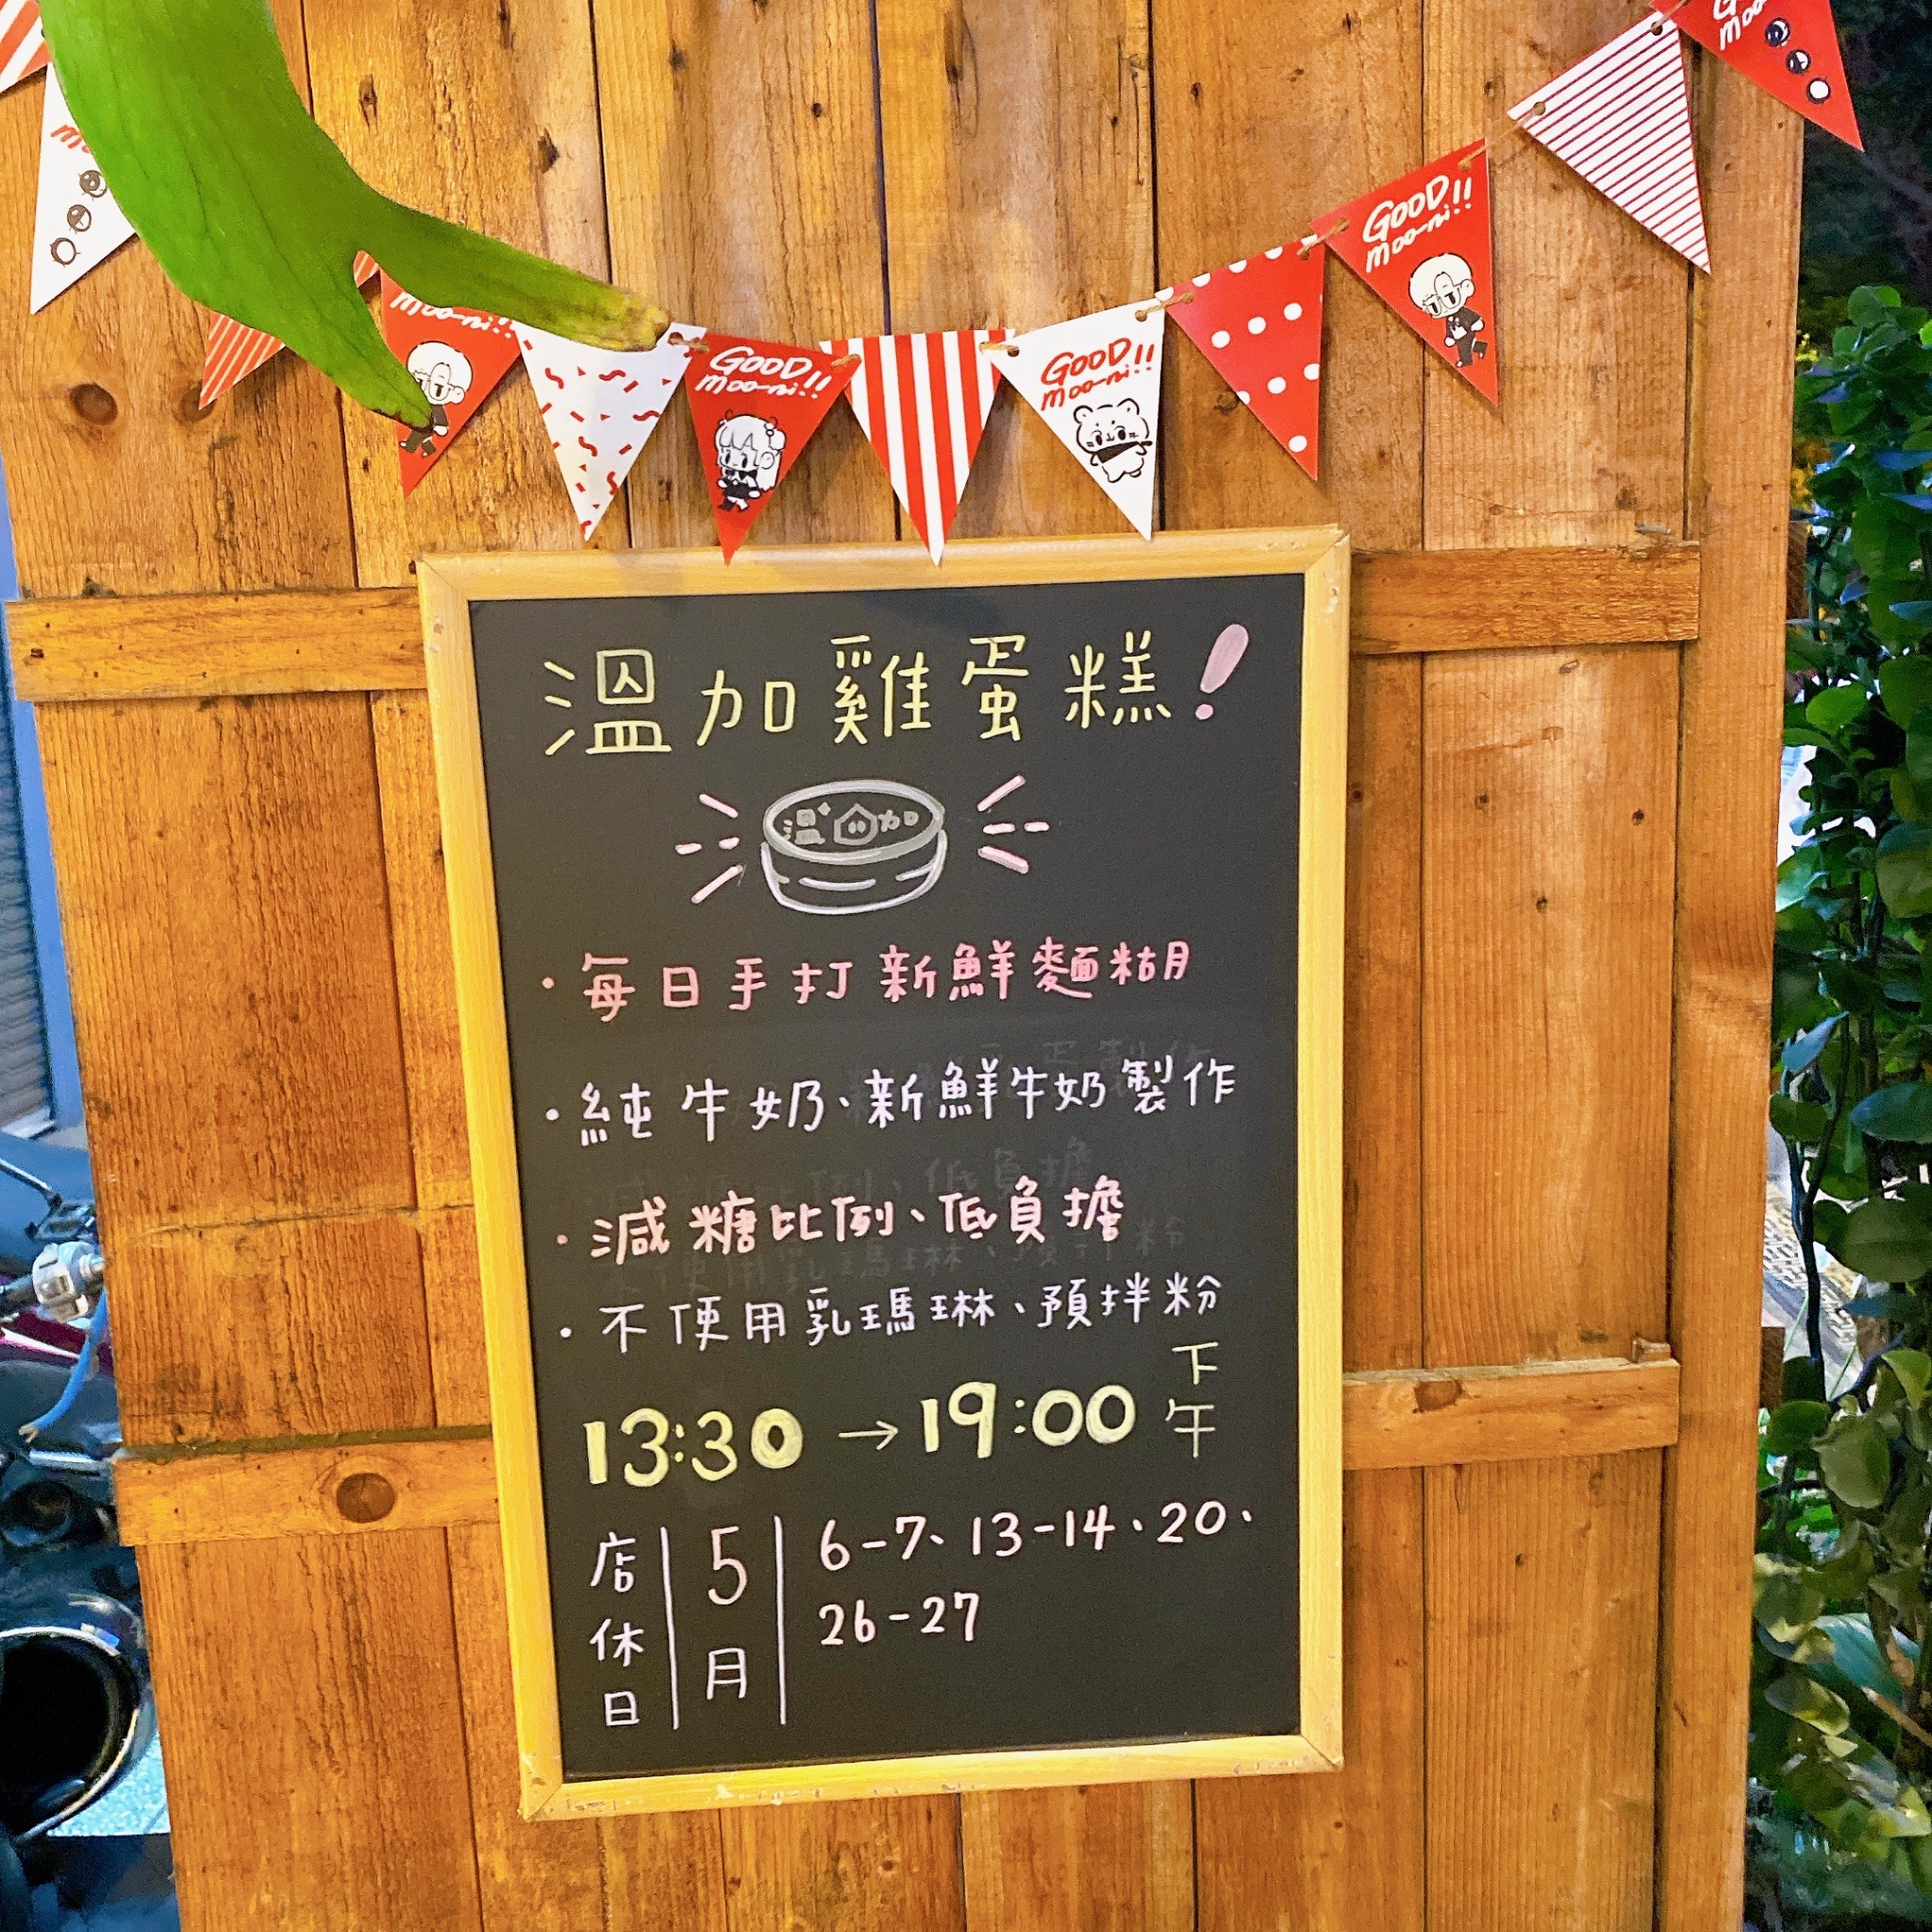 GOOD
moo-ni!!
moo-ni!!
GOOD
moo-ni!!
GOOD
moo-ni!!
GOOD
moo-ni!!
溫加雞蛋糕！
溫 加
・每日手打新鮮麵糊
・純牛奶、新鮮牛奶製作
・減糖比例、低負擔
・不使用乳瑪琳、預拌粉
13:30 → 19:00 下午
店休日 | 5月 | 6-7、13-14、20、
26-27